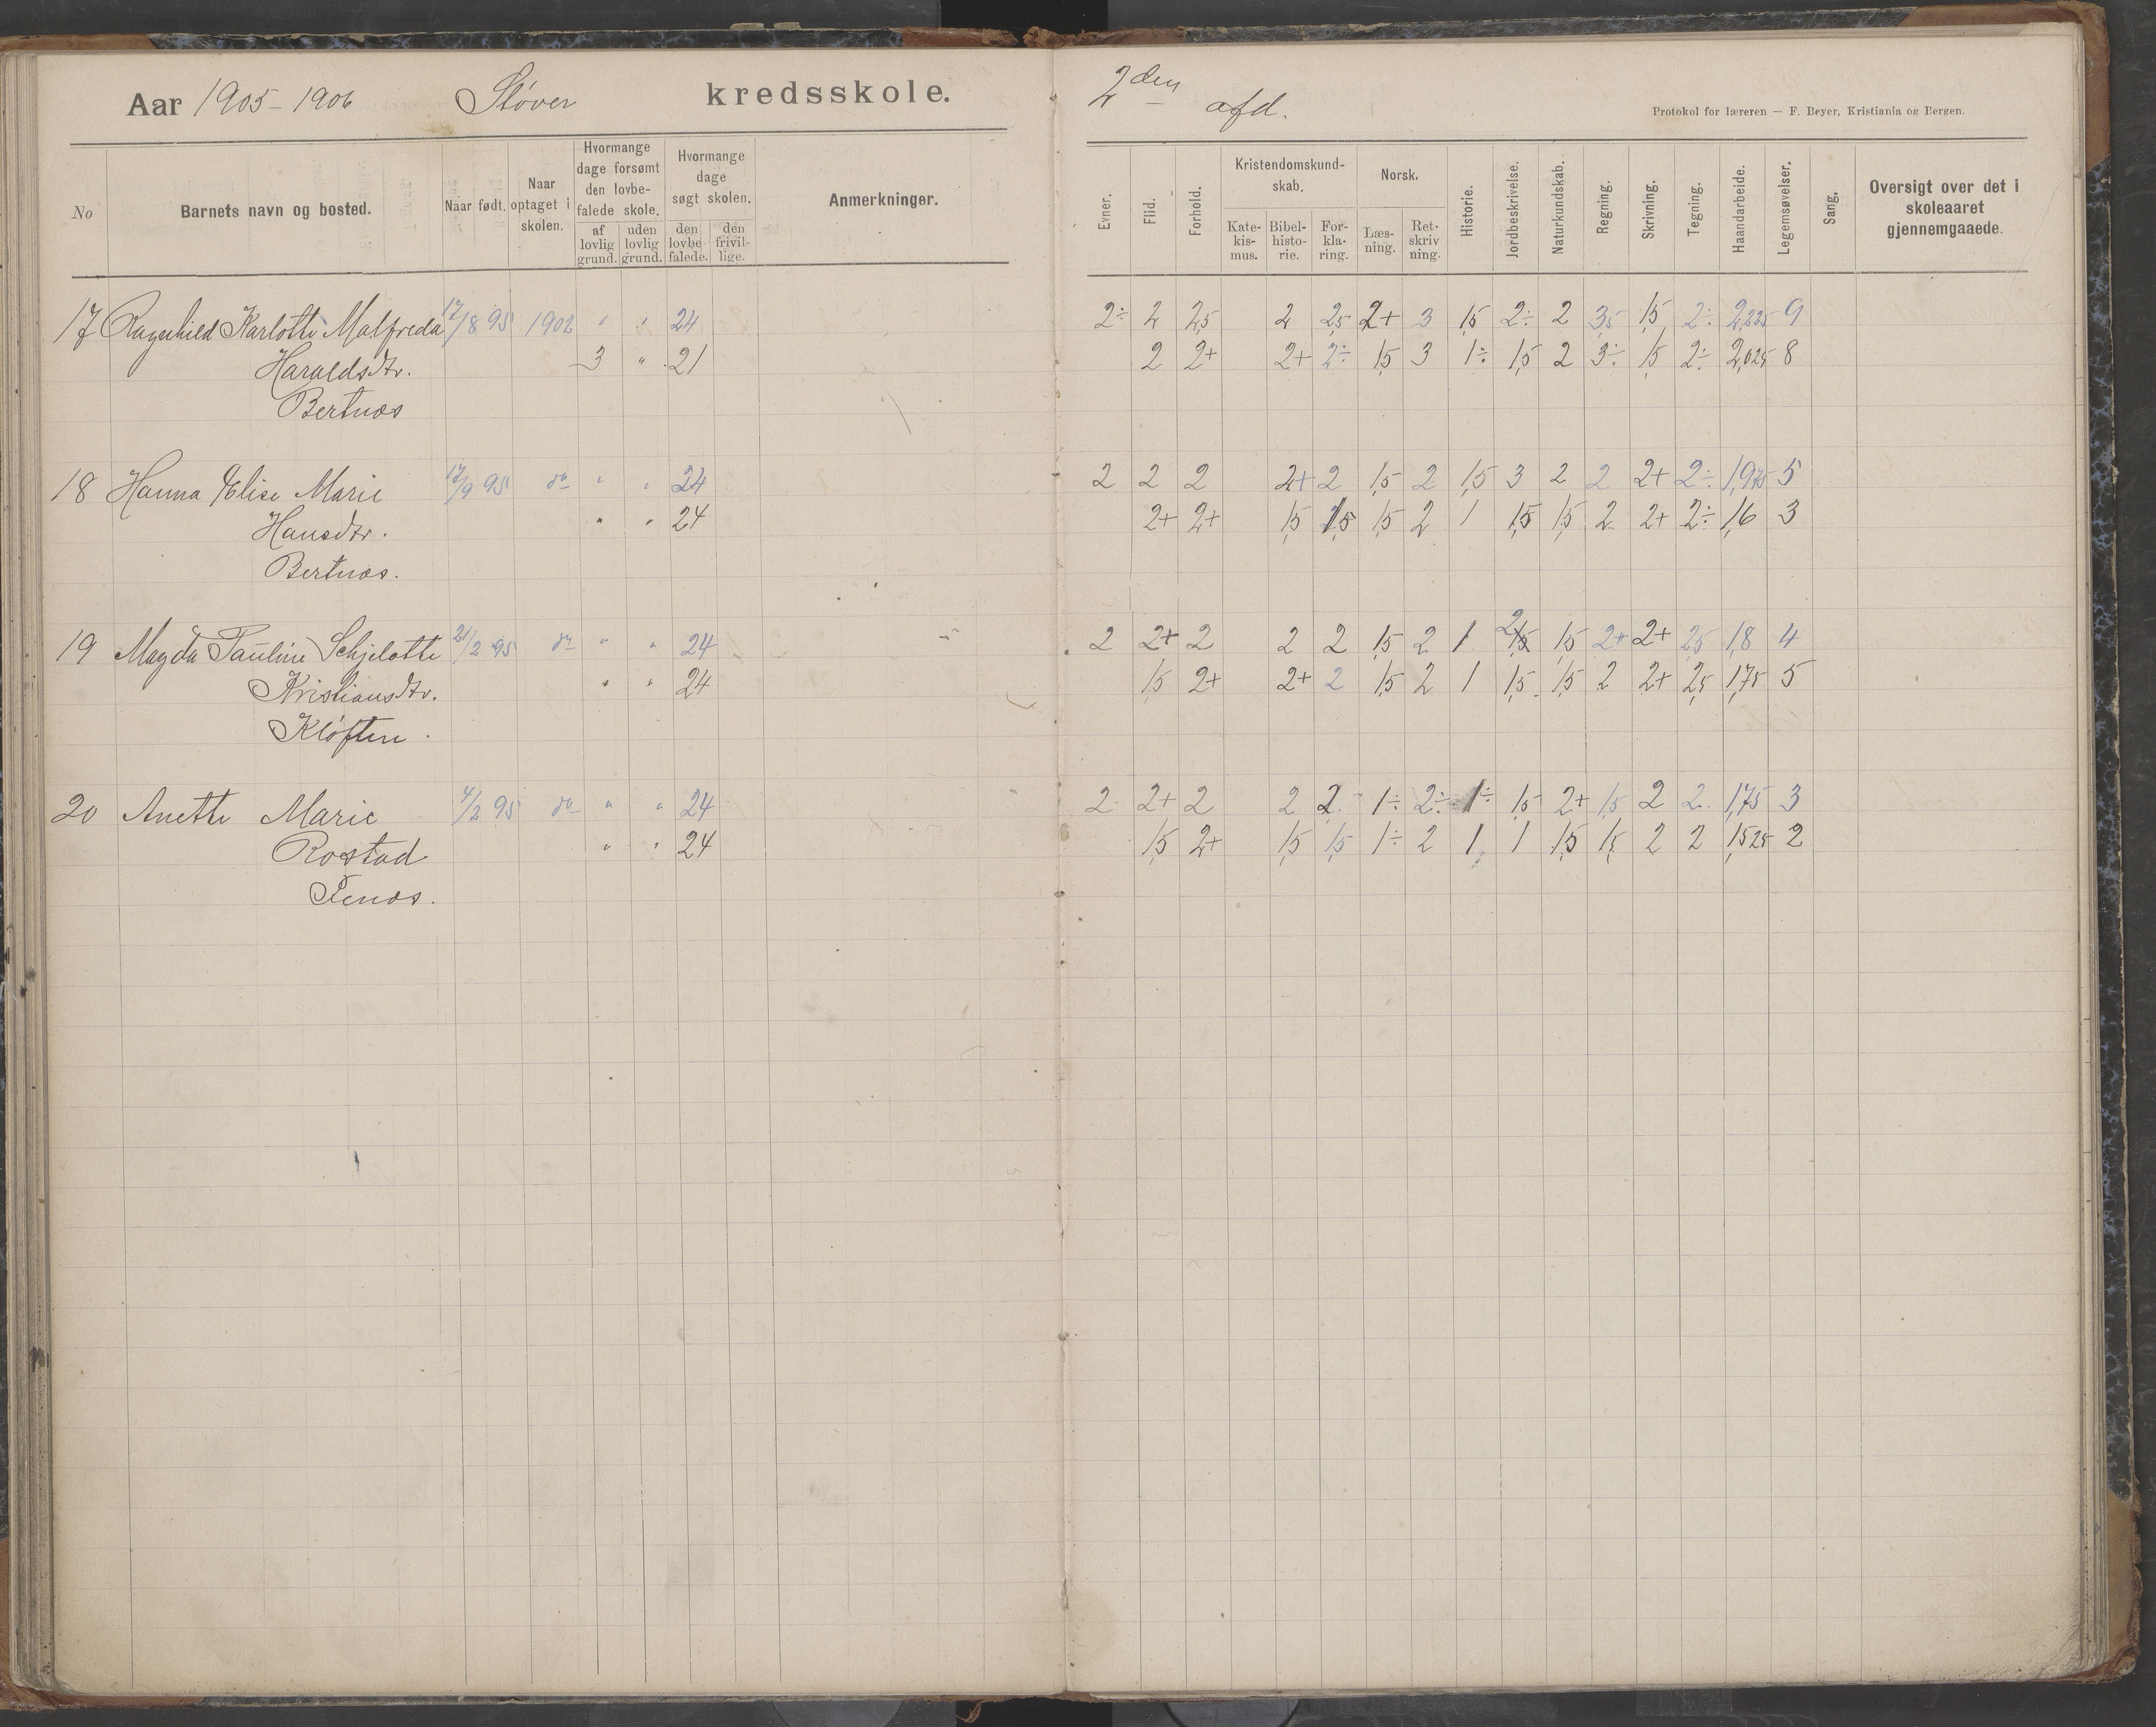 Aar 1905-1906 Støver kredsskole.
2den afd.
Protokol for læreren — F. Beyer, Kristiania og Bergen.
No Barnets navn og bosted. Naar født. Naar optaget i skolen. Hvormange dage forsømt den lovbefalede skole. af lovlig grund. uden lovlig grund. Hvormange dage søgt skolen. den lovbefalede. den frivillige. Anmerkninger.
Evner. Flid. Forhold. Kristendomskundskab. Katekismus. Bibelhistorie. Forklaring. Norsk. Læsning. Retskrivning. Historie. Jordbeskrivelse. Naturkundskab. Regning. Skrivning. Tegning. Haandarbeide. Legemsøvelser. Sang. Oversigt over det i skoleaaret gjennemgaaede.
17 Ragnhild Karlotte Malfreda 17/8 95 1902 " " 24 2÷ 2 2,5 2 2,5 2+ 3 1,5 2÷ 2 3,5 1,5 2÷ 2,225 9
Haraldsdtr. 3 " 21 2 2+ 2+ 2÷ 1,5 3 1÷ 1,5 2 3÷ 1,5 2÷ 2,025 8
Bertnæs
18 Hanna Elise Marie 17/9 95 do " " 24 2 2 2 2+ 2 1,5 2 1,5 3 2 2 2+ 2÷ 1,975 5
Hansdtr. " " 24 2+ 2+ 1,5 1,5 1,5 2 1 1,5 1,5 2 2+ 2÷ 1,6 3
Bertnæs.
19 Magda Pauline Schjelotte 21/2 95 do " " 24 2 2+ 2 2 2 1,5 2 1 2 1,5 2+ 2+ 2,5 1,8 4
Kristiansdtr. " " 24 1,5 2+ 2+ 2 1,5 2 1 1,5 1,5 2 2+ 2,5 1,75 5
Kløften.
20 Anette Marie 4/2 95 do " " 24 2 2+ 2 2 2 1÷ 2÷ 1÷ 1,5 2+ 1,5 2 2 1,75 3
Rostad " " 24 1,5 2+ 1,5 1,5 1÷ 2 1 1 1,5 1,5 2 2 1,525 2